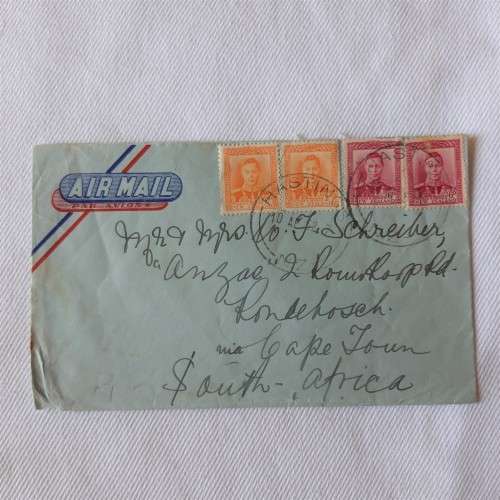 AIR MAIL
PAR AVION
HASTINGS
NEW ZEALAND
Mr & Mrs W. F. Schreiber,
Anzac 2 Rd.
Rondebosch.
via Cape Town
South-Africa